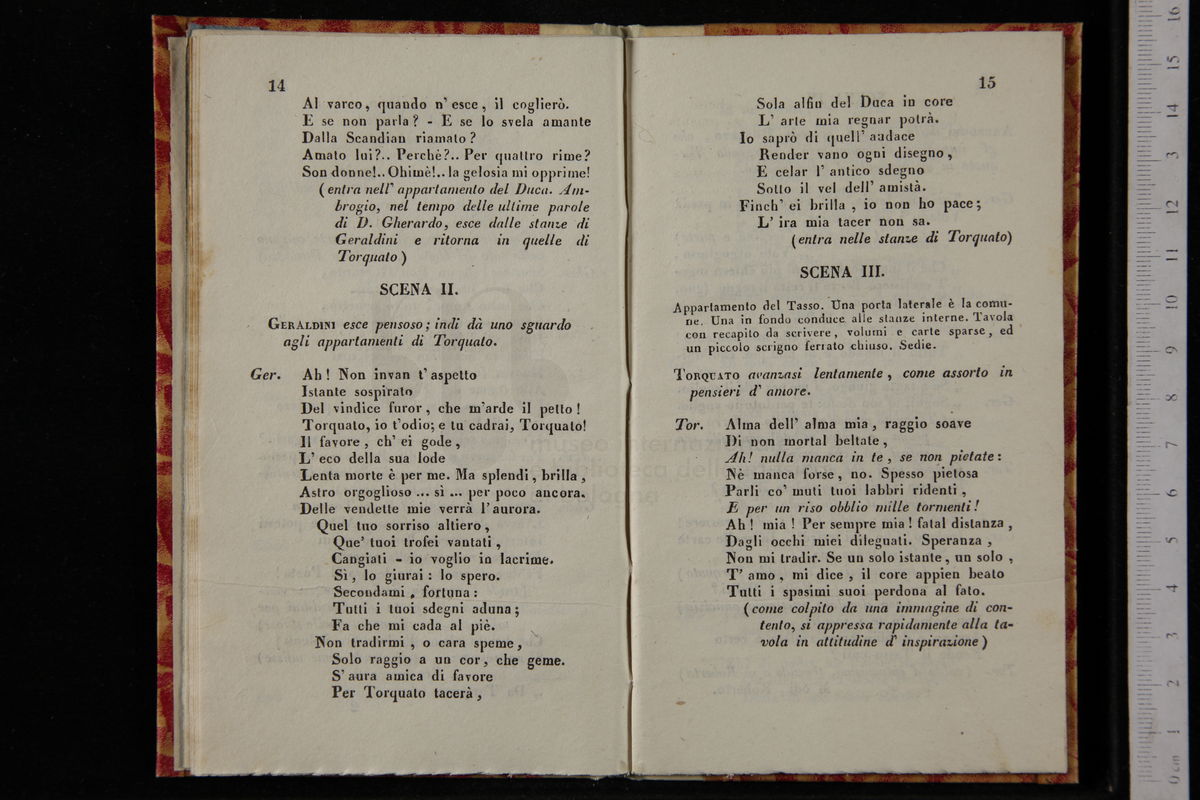 14
Al varco, quando n' esce, il coglierò.
E se non parla? - E se lo svela amante
Dalla Scandian riamato?
Amato lui?.. Perchè?.. Per quattro rime?
Son donne!.. Ohimè!.. la gelosia mi opprime!
(entra nell' appartamento del Duca. Am-
brogio, nel tempo delle ultime parole
di D. Gherardo, esce dalle stanze di
Geraldini e ritorna in quelle di
Torquato)
SCENA II.
GERALDINI esce pensoso; indi dà uno sguardo
agli appartamenti di Torquato.
Ger. Ah! Non invan t' aspetto
Istante sospirato
Del vindice furor, che m'arde il petto!
Torquato, io t'odio; e tu cadrai, Torquato!
Il favore, ch' ei gode,
L' eco della sua lode
Lenta morte è per me. Ma splendi, brilla,
Astro orgoglioso ... sì ... per poco ancora.
Delle vendette mie verrà l'aurora.
Quel tuo sorriso altiero,
Que' tuoi trofei vantati,
Cangiati - io voglio in lacrime.
Sì, lo giurai: lo spero.
Secondami, fortuna:
Tutti i tuoi sdegni aduna;
Fa che mi cada al piè.
Non tradirmi, o cara speme,
Solo raggio a un cor, che geme.
S' aura amica di favore
Per Torquato tacerà,
15
Sola alfin del Duca in core
L' arte mia regnar potrà.
Io saprò di quell' audace
Render vano ogni disegno,
E celar l' antico sdegno
Sotto il vel dell' amistà.
Finch' ei brilla, io non ho pace;
L' ira mia tacer non sa.
(entra nelle stanze di Torquato)
SCENA III.
Appartamento del Tasso. Una porta laterale è la comu-
ne. Una in fondo conduce alle stanze interne. Tavola
con recapito da scrivere, volumi e carte sparse, ed
un piccolo scrigno ferrato chiuso. Sedie.
TORQUATO avanzasi lentamente, come assorto in
pensieri d' amore.
Tor. Alma dell' alma mia, raggio soave
Di non mortal beltate,
Ah! nulla manca in te, se non pietate:
Nè manca forse, no. Spesso pietosa
Parli co' muti tuoi labbri ridenti,
E per un riso obblio mille tormenti!
Ah! mia! Per sempre mia! fatal distanza,
Dagli occhi miei dileguati. Speranza,
Non mi tradir. Se un solo istante, un solo,
T' amo, mi dice, il core appien beato
Tutti i spasimi suoi perdona al fato.
(come colpito da una immagine di con-
tento, si appressa rapidamente alla ta-
vola in attitudine d' inspirazione)